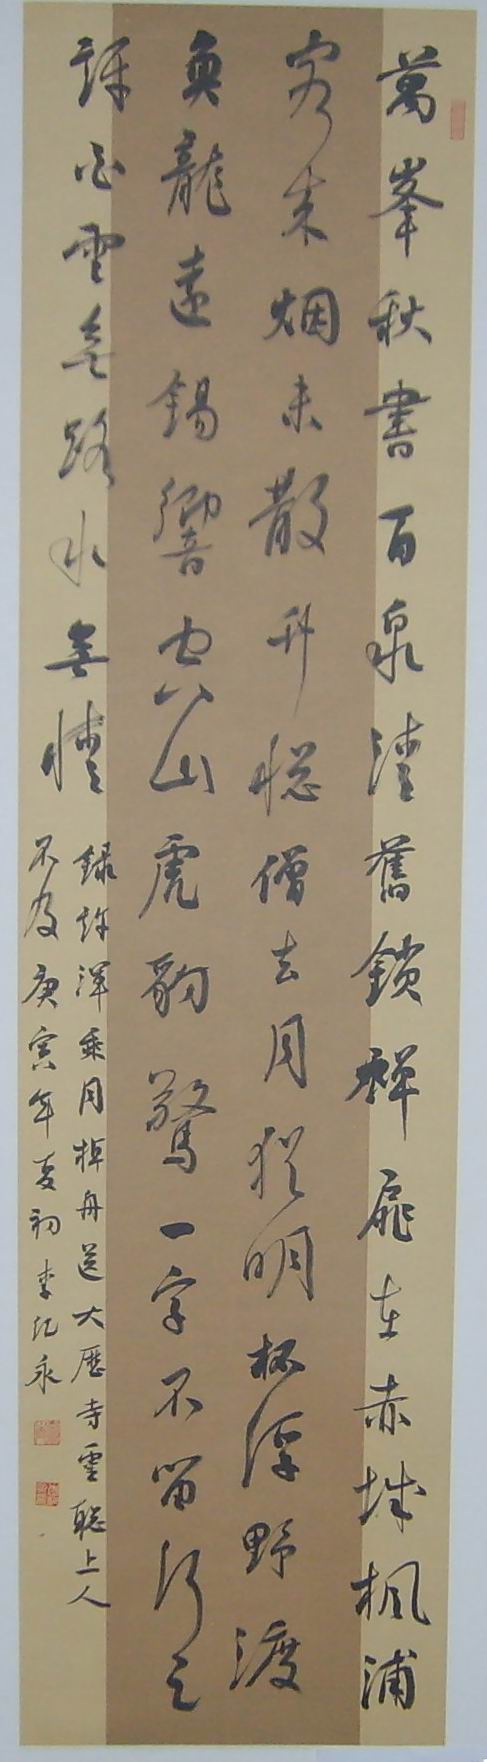 萬峯秋書百泉清舊鎖禪扉在赤城楓浦
客來烟未散竹㥥僧去月猶明杯浮野渡
魚龍遠錫響空山虎豹驚一字不留何足
訝白雲無路水無情
錄許渾乘月棹舟送大歷寺雲聰上人
不及庚寅年夏初李紀永